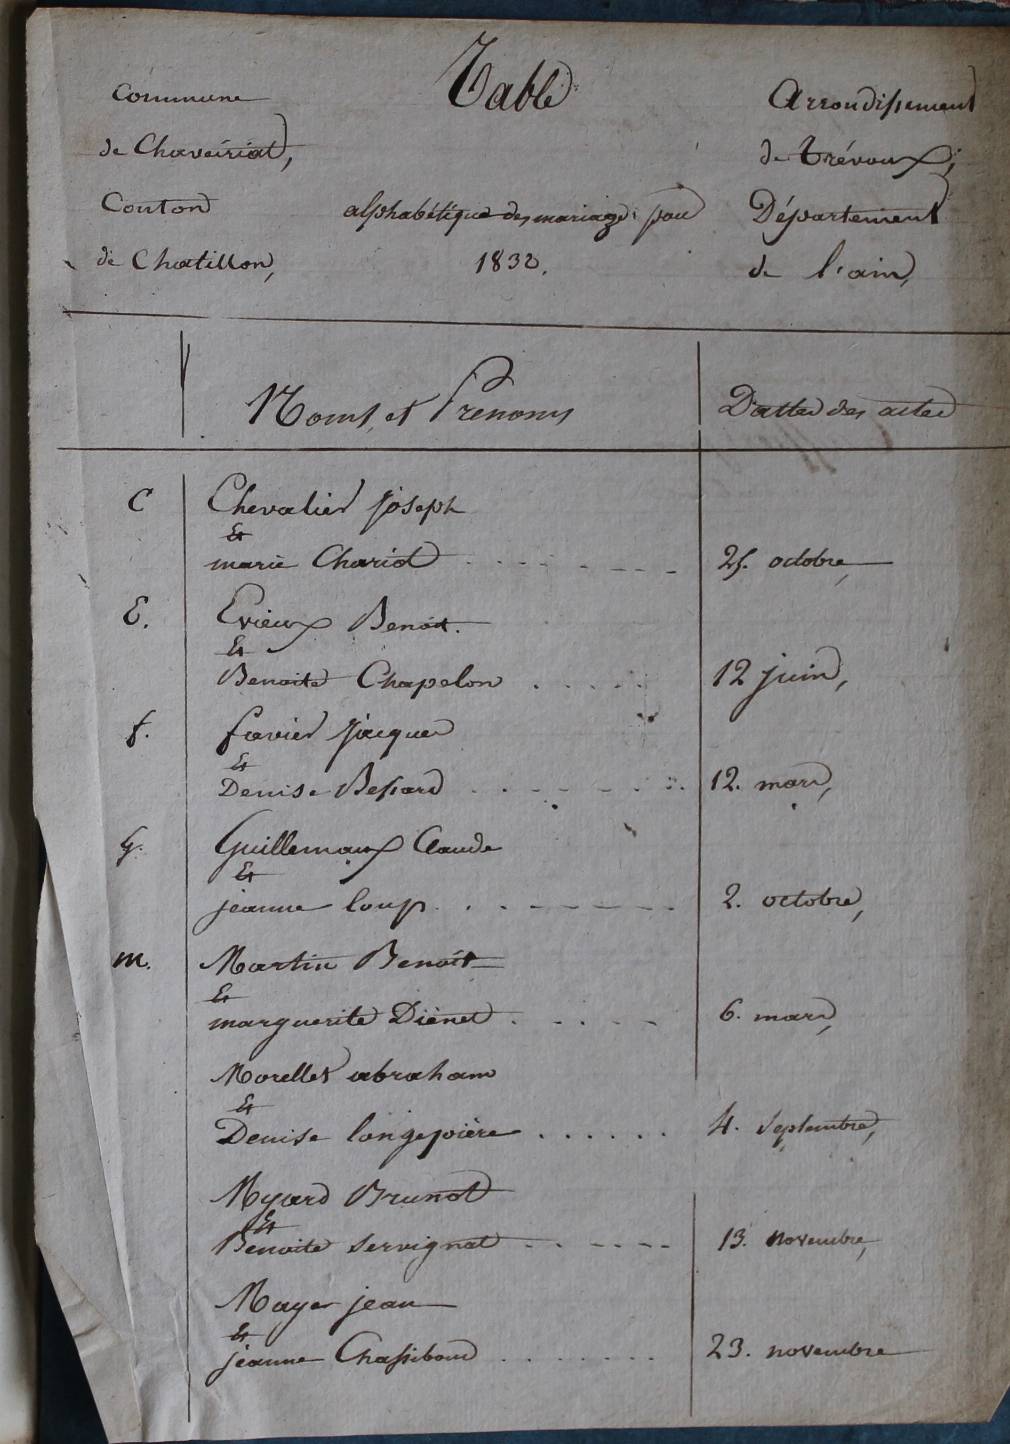 Table
Commune
de Chaveiriat,
Canton
de Chatillon,
alphabétique des mariages pour
1832.
Arrondissement
de Trévoux;
Département
de l'ain,
Noms et Prénoms
Dattes des actes
C
Chevalier joseph
Et
marie Chariot
25. octobre,
E.
Evieux Benoit.
Et
Benoite Chapelon
12 juin,
f.
favier Jacques
Et
Denise Bessard
12. mars,
G.
Guillemaux Claude
Et
jeanne loup
2. octobre,
m.
Martin Benoit
Et
marguerite Diénet
6. mars,
Morellet abraham
Et
Denise longepière
4. Septembre,
Myard Brunot
Et
Benoite servignat
13. novembre,
Mayer jean
Et
jeanne Chassiboud
23. novembre